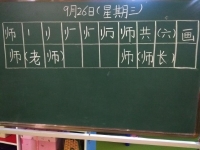 9月26日(星期三)
师 丨 丿 师 共(六) 画
师(老师) 师(师长)